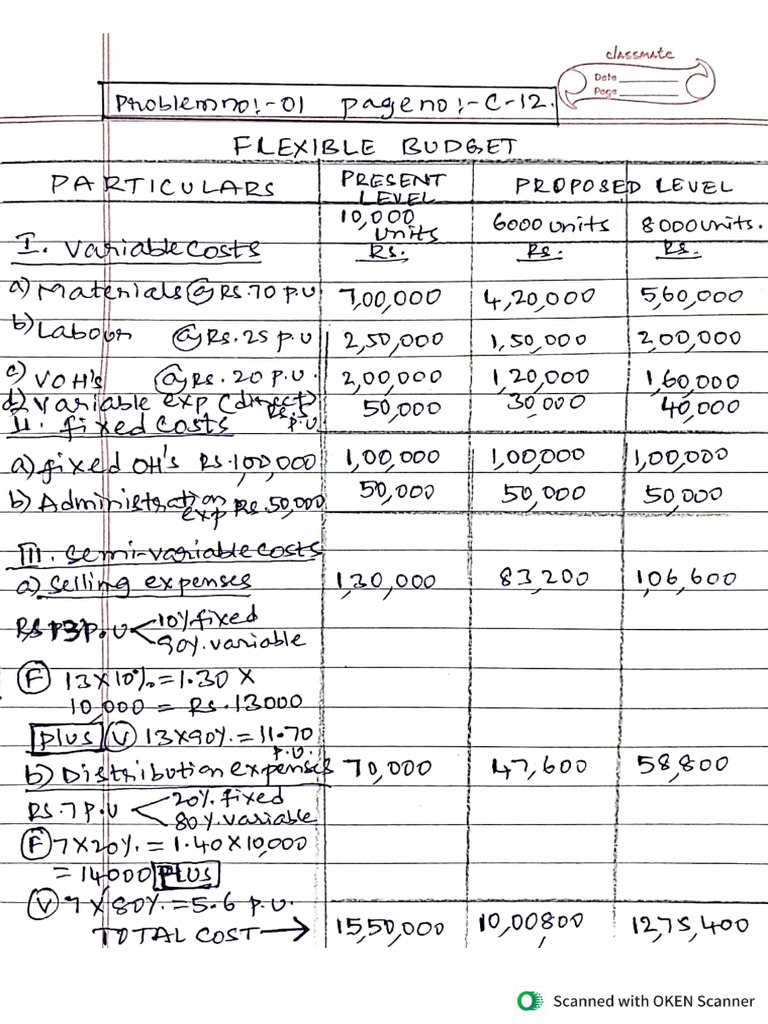 classmate
Date
Page
Problem no:-01 Page no:-C-12.
FLEXIBLE BUDGET
PARTICULARS PRESENT LEVEL PROPOSED LEVEL
10,000 units 6000 units 8000 units.
I. Variable Costs Rs. Rs. Rs.
a) Materials @ Rs.70 p.u 7,00,000 4,20,000 5,60,000
b) Labour @ Rs.25 p.u 2,50,000 1,50,000 2,00,000
c) VOH's @ Rs.20 p.u. 2,00,000 1,20,000 1,60,000
d) Variable exp (direct) Rs.5 p.u 50,000 30,000 40,000
II. fixed costs
a) fixed OH's Rs.1,00,000 1,00,000 1,00,000 1,00,000
b) Administration exp Rs.50,000 50,000 50,000 50,000
III. Semi-variable costs
a) Selling expenses 1,30,000 83,200 1,06,600
Rs 13 P.U 10% fixed
90% variable
F 13 X 10% = 1.30 X
10,000 = Rs.13000
plus V 13 X 90% = 11.70 P.U.
b) Distribution expenses 70,000 47,600 58,800
Rs.7 P.U 20% fixed
80% variable
F 7 X 20% = 1.40 X 10,000
= 14000 PLUS
V 7 X 80% = 5.6 P.U.
TOTAL COST → 15,50,000 10,00800 12,75,400
Scanned with OKEN Scanner